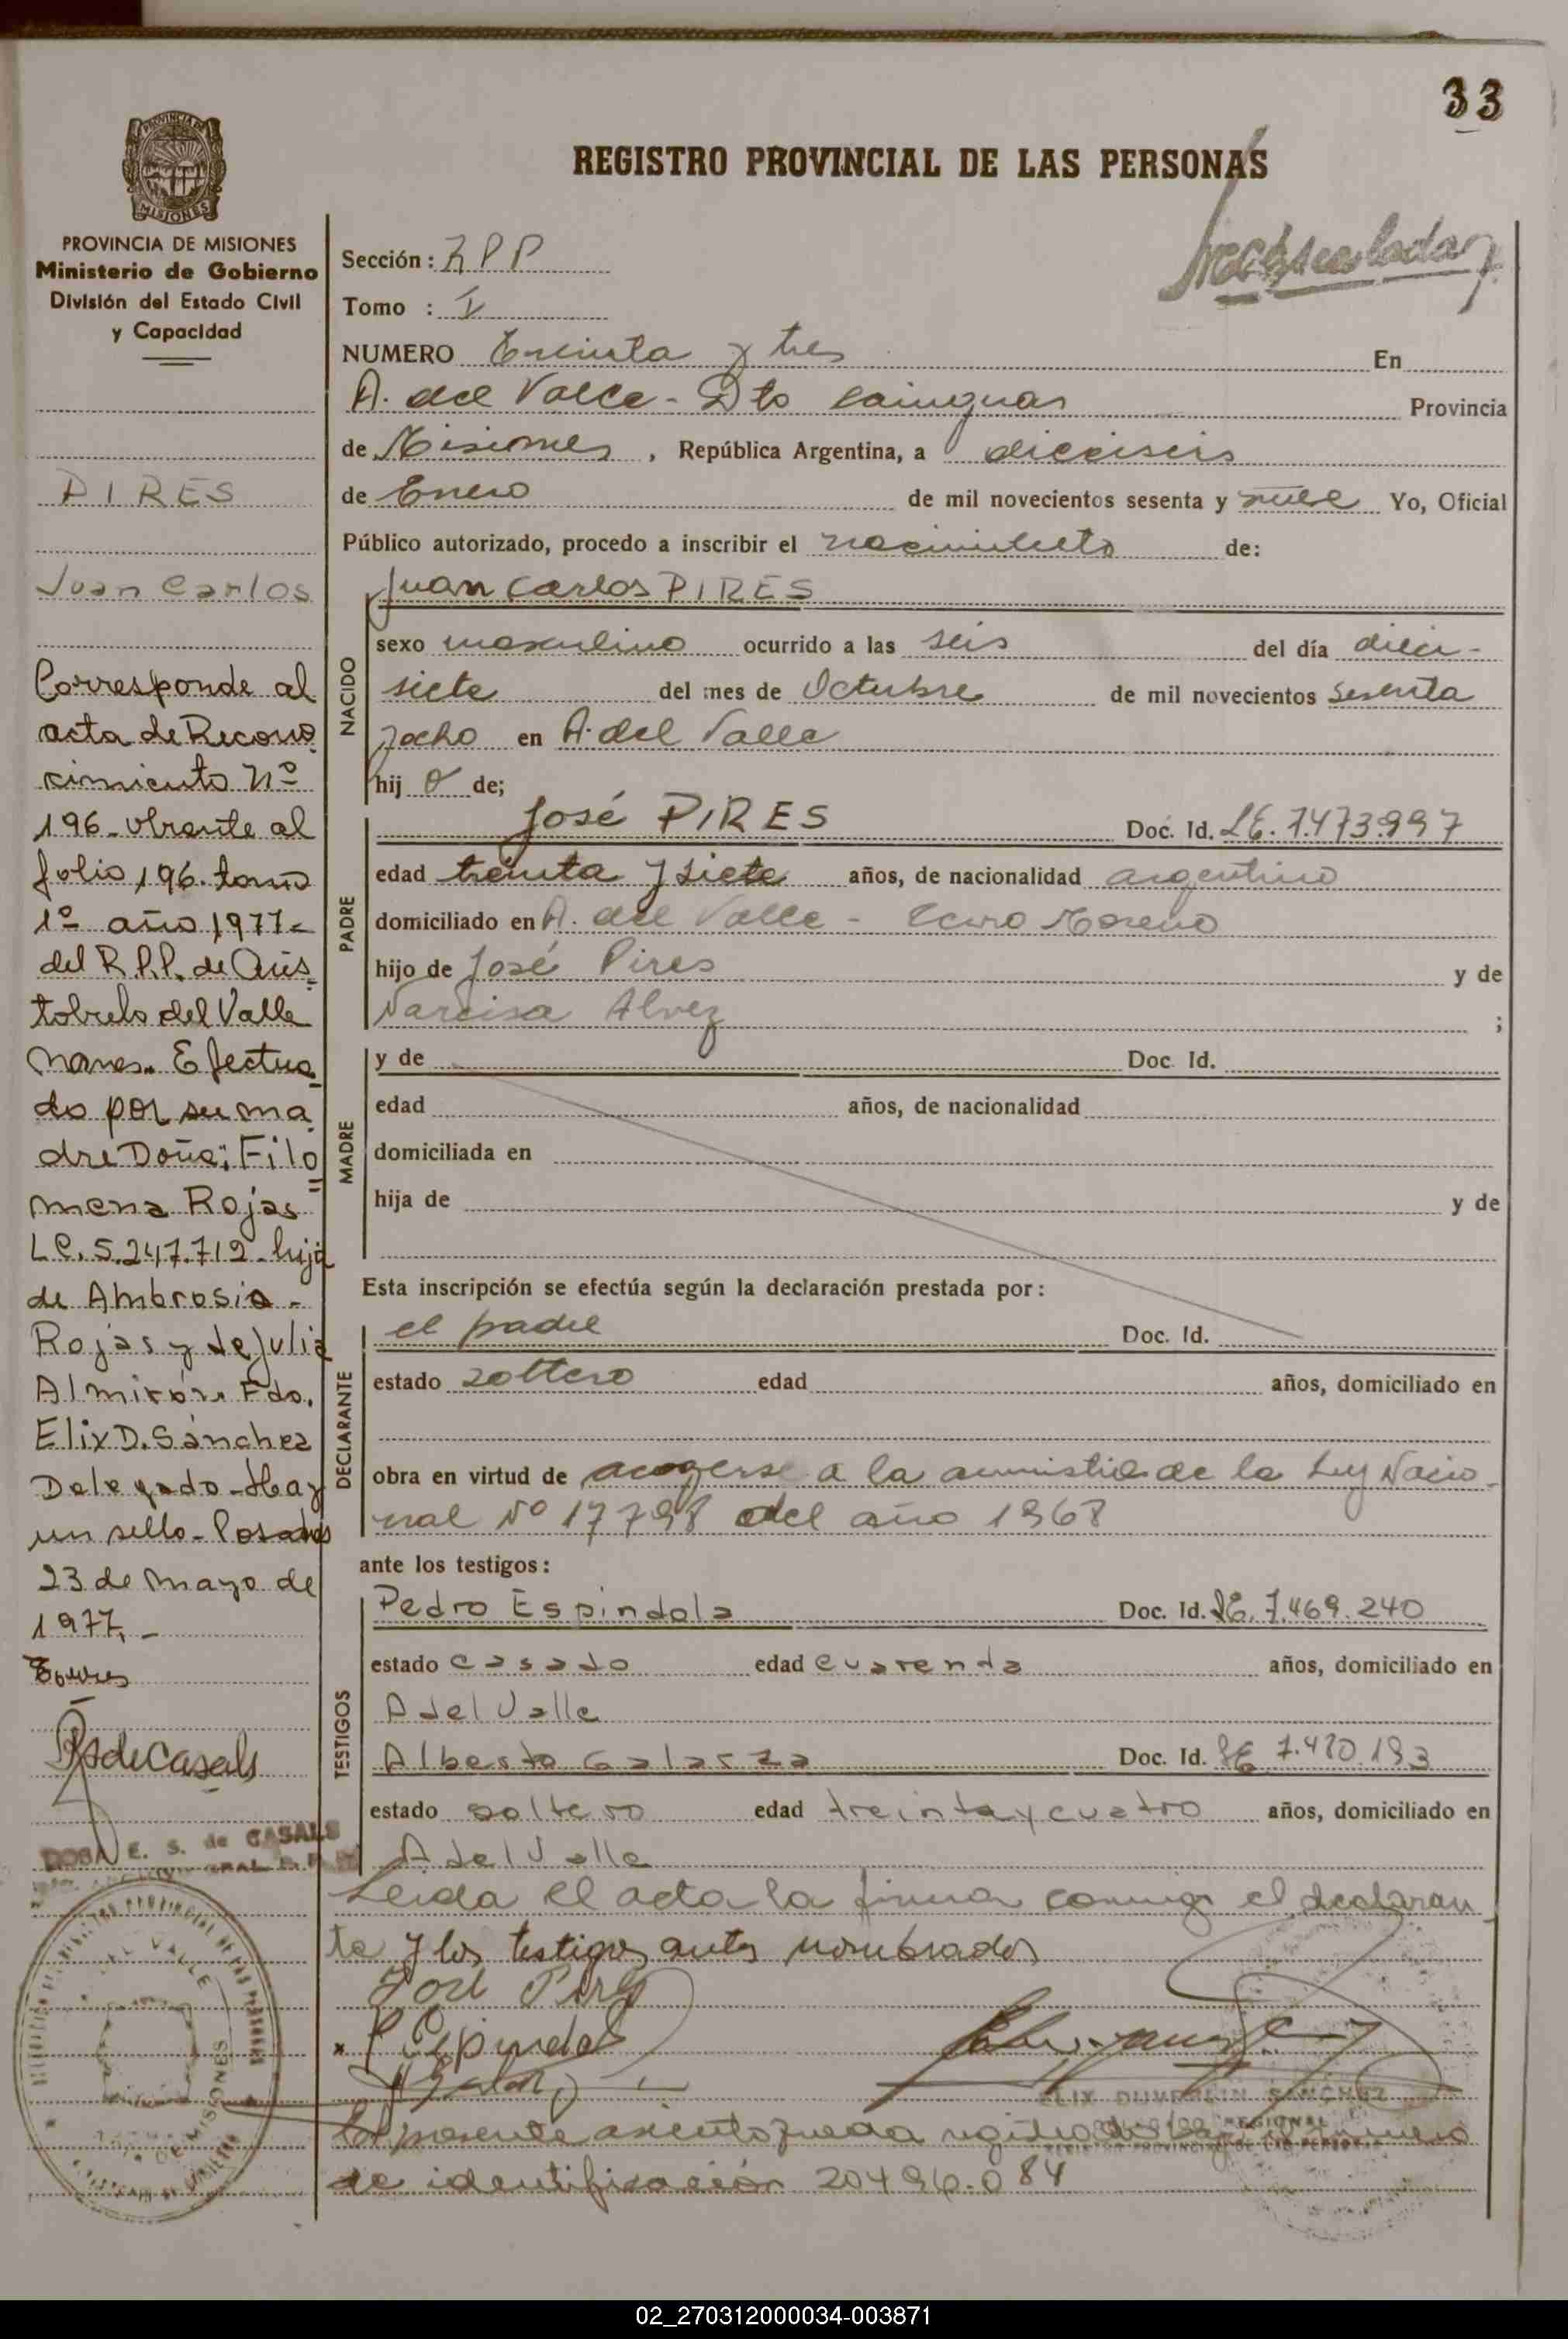 33
REGISTRO PROVINCIAL DE LAS PERSONAS
PROVINCIA DE MISIONES
Ministerio de Gobierno
División del Estado Civil
y Capacidad
PIRES
Juan Carlos
Corresponde al
acta de Recono
cimiento Nº
196 obrante al
folio 196. tomo
1º año 1977-
del R.P.P. de Aris
tobulo del Valle
Mnes. Efectua
do por su ma
dre Doña; Filo
mena Rojas
L.C. 5.247.712 - hija
de Ambrosio -
Rojas y de Julia
Almirón. Fdo.
Elix D. Sánchez
Delegado - Hay
un sello - Posadas
23 de Mayo de
1977. -
E. S. de CASALS
Sección: RPP
Tomo : I
NUMERO Treinta y tres En
A. del Valle - Dto Cainguas Provincia
de Misiones, República Argentina, a dieciseis
de Enero de mil novecientos sesenta y nueve Yo, Oficial
Público autorizado, procedo a inscribir el nacimiento de:
Juan Carlos PIRES
NACIDO
sexo masculino ocurrido a las seis del día dieci-
siete del mes de Octubre de mil novecientos sesenta
y ocho en A. del Valle
hij o de;
PADRE
José PIRES Doc. Id. LE. 7.473.997
edad treinta y siete años, de nacionalidad argentino
domiciliado en A. del Valle - Moreno
hijo de José Pires y de
Narcisa Alvez ;
MADRE
y de Doc. Id.
edad años, de nacionalidad
domiciliada en
hija de y de
Esta inscripción se efectúa según la declaración prestada por:
DECLARANTE
el padre Doc. Id.
estado soltero edad años, domiciliado en
obra en virtud de acogerse a la amnistia de la Ley Nacio-
nal Nº 17798 del año 1968
ante los testigos:
TESTIGOS
Pedro Espindola Doc. Id. LE. 7.469.240
estado casado edad cuarenta años, domiciliado en
A del Valle
Alberto Galarza Doc. Id. LE 7.470.193
estado soltero edad treinta y cuatro años, domiciliado en
A del Valle
Leida el acta la firma conmigo el declaran
te y los testigos antes nombrados
José Pires
P. Espindola
ELIX DUVERLIN SANCHEZ
REGIONAL
REGISTRO PROVINCIAL DE LAS PERSONAS
El presente asiento queda numero
de identificación 20496.084
02_270312000034-003871